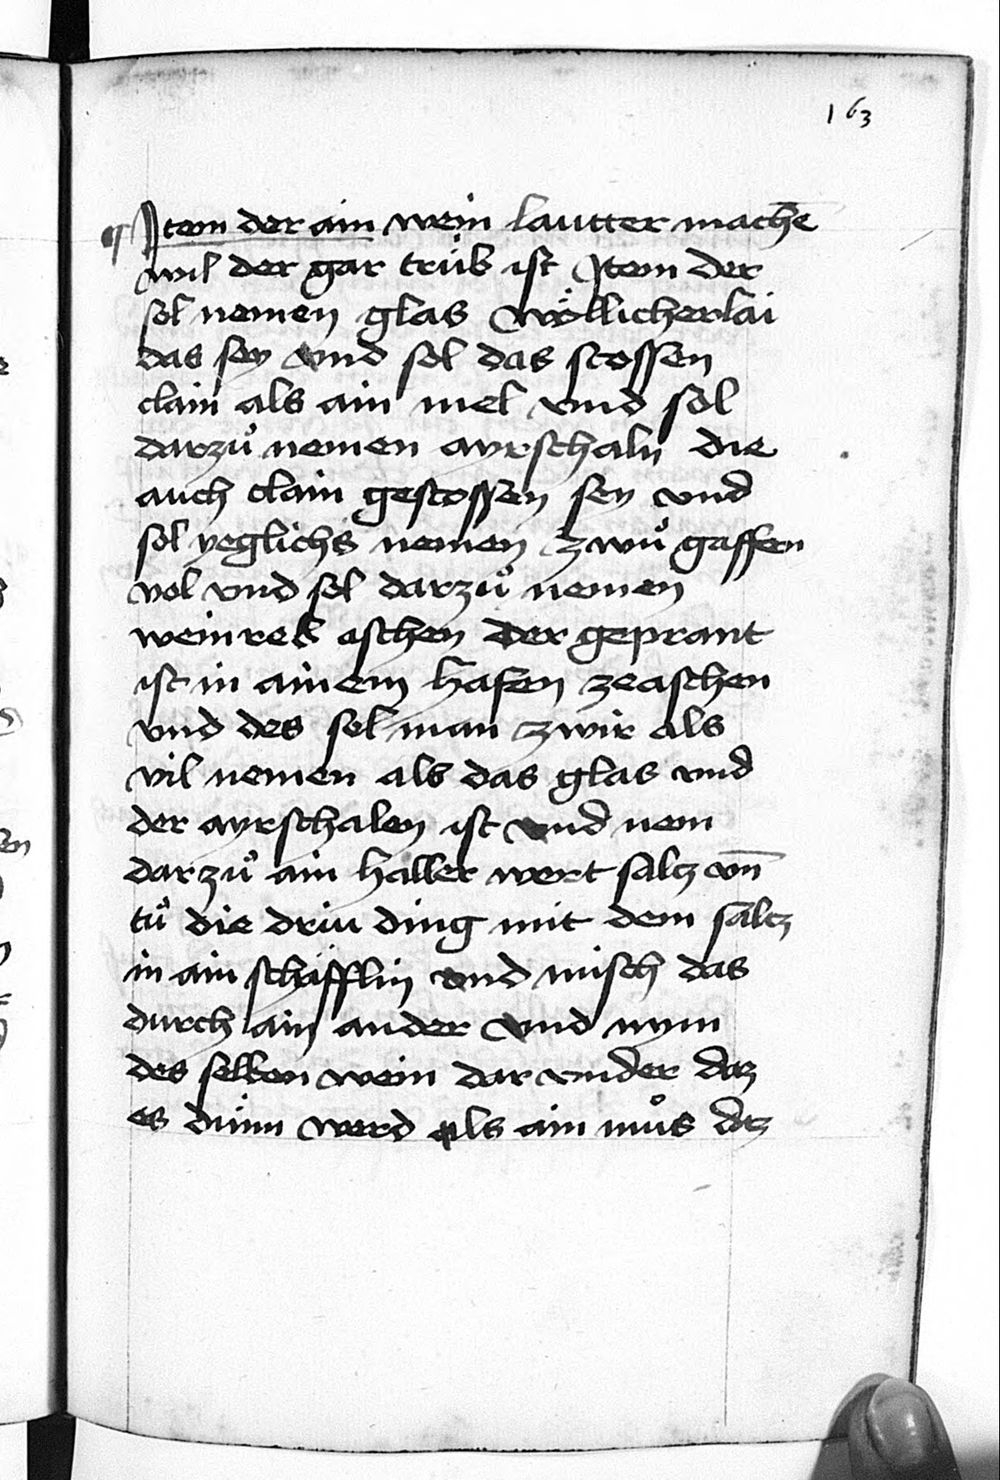 163
¶ Item der ain wein lautter machē
wil der gar trüb ist Item der
sol nemen glas wöllicherlai
das sey vnd sol das stossen
clain als ain mel vnd sol
darzuͦ nemen ayrschaln die
auch clain gestossen sey vnd
sol yeglichs nemen zwuͦ gaffen
vol vnd sol darzuͦ nemen
weinreb aschen der geprant
ist in ainem hafen ze aschen
vnd des sol man zwir als
vil nemen als das glas vnd
der ayrschalen ist vnd nem
darzuͦ ain häller wert saltz vn̄
tuͦ die driu ding mit dem saltz
in ain schäfflin vnd misch das
durch ain ander vnd nym
des selben wein dar vnder daz
es dünn werd als ain muͦs daz